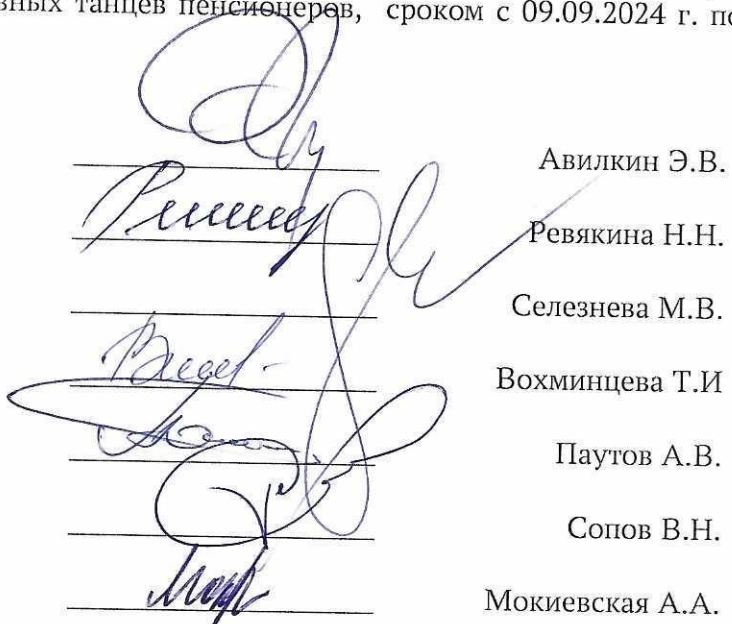 вных танцев пенсионеров, сроком с 09.09.2024 г. по
Авилкин Э.В.
Ревякина Н.Н.
Селезнева М.В.
Вохминцева Т.И
Паутов А.В.
Сопов В.Н.
Мокиевская А.А.